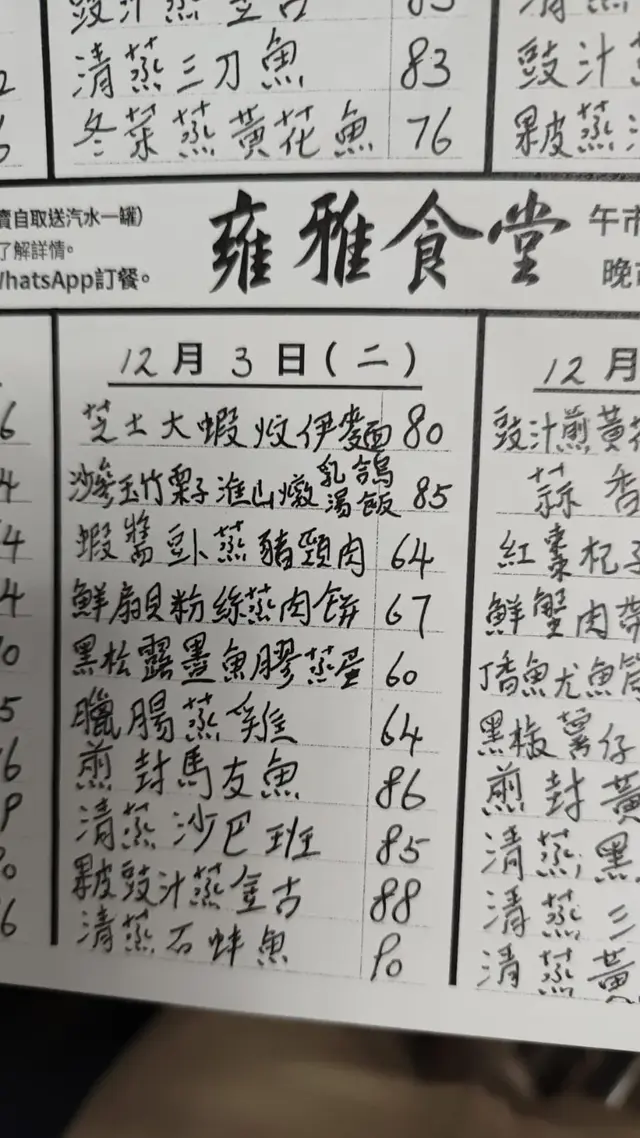 豉汁蒸金古 83
清蒸三刀魚 83
冬菜蒸黃花魚 76
豉汁
果皮蒸
賣自取送汽水一罐)
了解詳情。
WhatsApp訂餐。
雍雅食堂
午市
晚市
12月3日(二)
芝士大蝦炆伊麵 80
沙參玉竹栗子淮山燉乳鴿湯飯 85
蝦醬豆卜蒸豬頸肉 64
鮮扇貝粉絲蒸肉餅 67
黑松露墨魚膠蒸蛋 60
臘腸蒸雞 64
煎封馬友魚 86
清蒸沙巴班 85
果皮豉汁蒸金古 88
清蒸石蚌魚 90
12月
豉汁煎黃花
蒜香
紅棗杞子
鮮蟹肉帶
黑椒薯仔
煎封黃
清蒸黑
清蒸三
清蒸黃